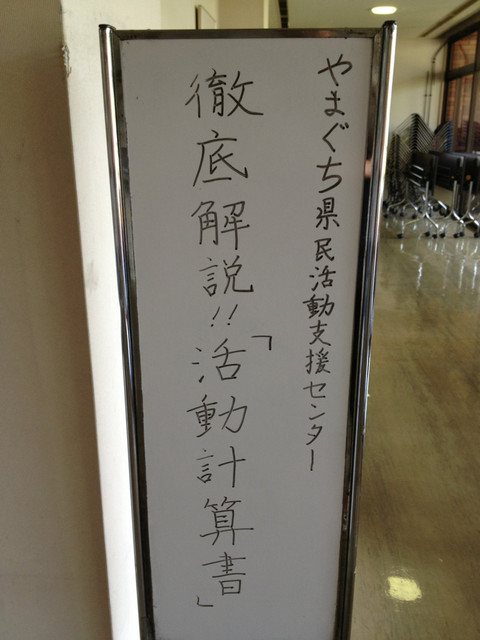 やまぐち県民活動支援センター
徹底解説!!「活動計算書」